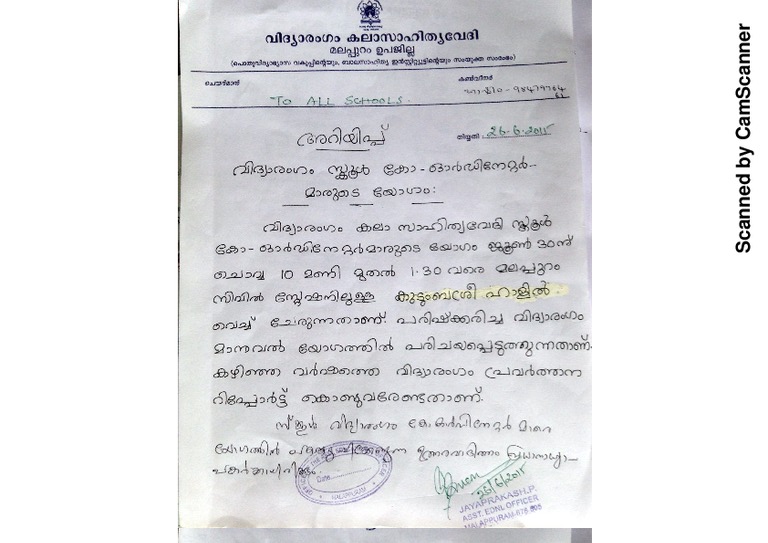 വിദ്യാരംഗം കലാസാഹിത്യവേദി
മലപ്പുറം ഉപജില്ല
(പൊതുവിദ്യാഭ്യാസ വകുപ്പിന്റെയും, ബാലസാഹിത്യ ഇൻസ്റ്റിറ്റ്യൂട്ടിന്റെയും സംയുക്ത സംരംഭം)
ചെയർമാൻ കൺവീനർ
TO ALL SCHOOLS.
അറിയിപ്പ് തിയ്യതി: 26-6-2015
വിദ്യാരംഗം സ്കൂൾ കോ-ഓർഡിനേറ്റർ-
മാരുടെ യോഗം:
വിദ്യാരംഗം കലാ സാഹിത്യവേദി സ്കൂൾ
കോ-ഓർഡിനേറ്റർമാരുടെ യോഗം ജൂൺ 30ന്
ചൊവ്വ 10 മണി മുതൽ 1.30 വരെ മലപ്പുറം
സിവിൽ സ്റ്റേഷനിലുള്ള കുടുംബശ്രീ ഹാളിൽ
വെച്ച് ചേരുന്നതാണ്. പരിഷ്ക്കരിച്ച വിദ്യാരംഗം
മാന്വവൽ യോഗത്തിൽ പരിചയപ്പെടുത്തുന്നതാണ്.
കഴിഞ്ഞ വർഷത്തെ വിദ്യാരംഗം പ്രവർത്തന
റിപ്പോർട്ട് കൊണ്ടുവരേണ്ടതാണ്.
സ്കൂൾ വിദ്യാരംഗം കോ.ഓർഡിനേറ്റർ മാരെ
യോഗത്തിൽ
Date
MALAPPURAM
26/6/2015
JAYAPRAKASH.P.
ASST. EDNL OFFICER
MALAPPURAM-676 505
Scanned by CamScanner